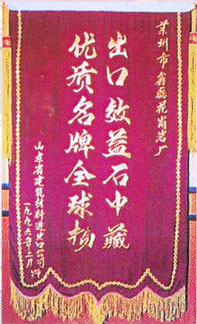 莱州市翁磊花岗岩厂
出口效益石中藏
优质名牌全球扬
山东省建筑材料进出口公司
一九九六年二月